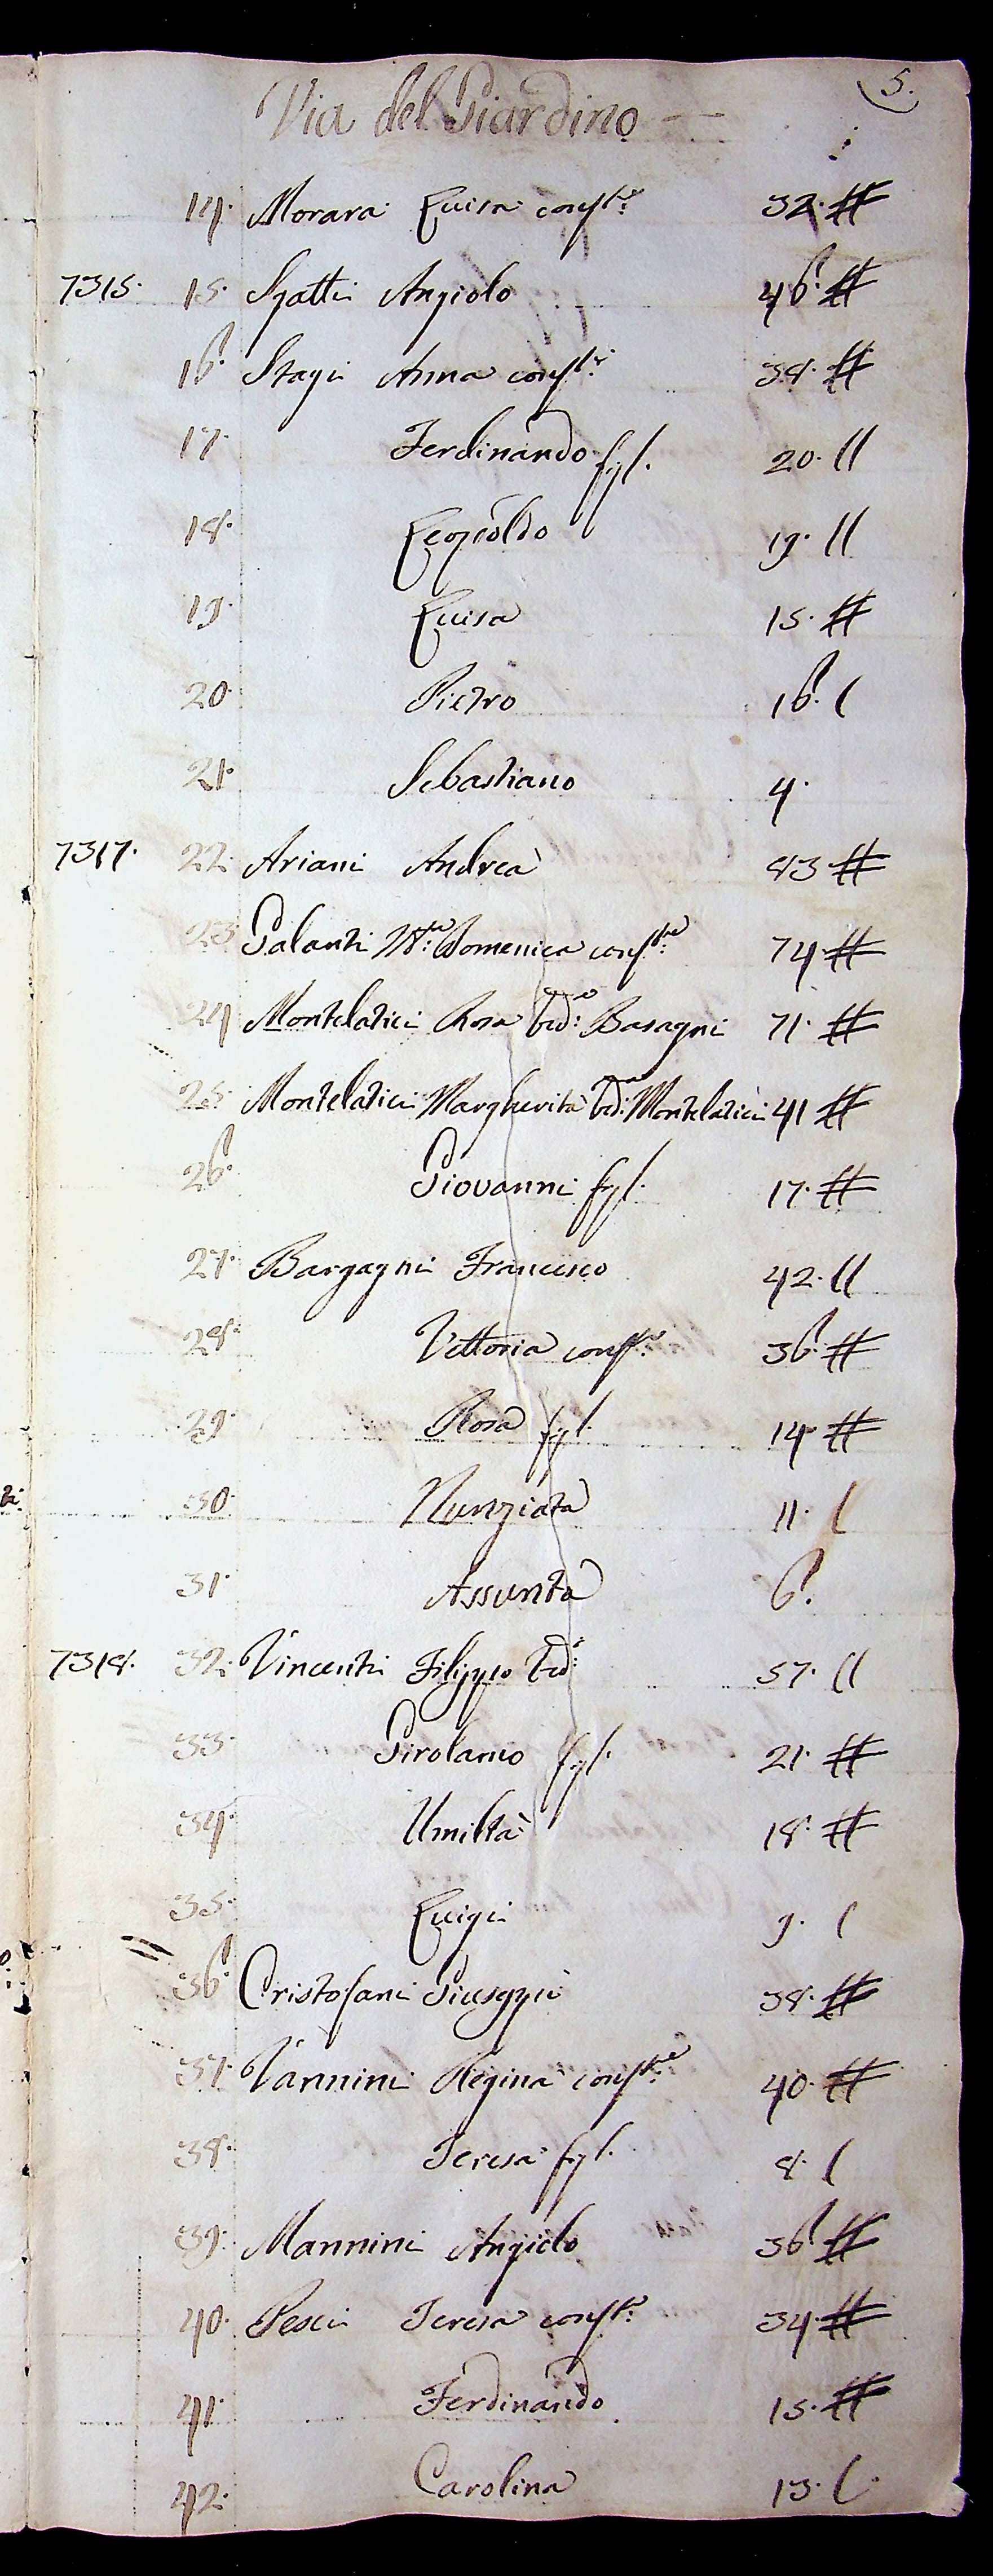 5.
Via del Giardino
14. Morara Luisa conste: 32.
7315. 15. Sgatti Angiolo 46.
16. Stagi Anna conste: 38.
17. Ferdinando figl. 20.
18. Leopoldo 19.
19. Luisa 15.
20. Pietro 16.
21. Sebastiano 4.
7317. 22. Ariani Andrea 83
23 Galanti Ma: Domenica conste: 74
24 Montelatici Rosa Ved: Basagni 71.
25 Montelatici Margherita Ved: Montelatici 41
26. Giovanni figl. 17.
27. Bargagni Francesco 42.
28. Vittoria conste: 36.
29. Rosa figl. 14
30. Nunziata 11.
31. Assunta 6.
7318. 32. Vincenti Filippo Ved: 57.
33. Girolamo figl. 21.
34. Umiltà 18.
35. Luigi 9.
36. Cristofani Giuseppe 38.
37. Vannini Regina conste: 40.
38. Teresa figl. 8.
39. Mannini Angiolo 36
40. Pesci Teresa conste: 34
41. Ferdinando 15.
42. Carolina 13.